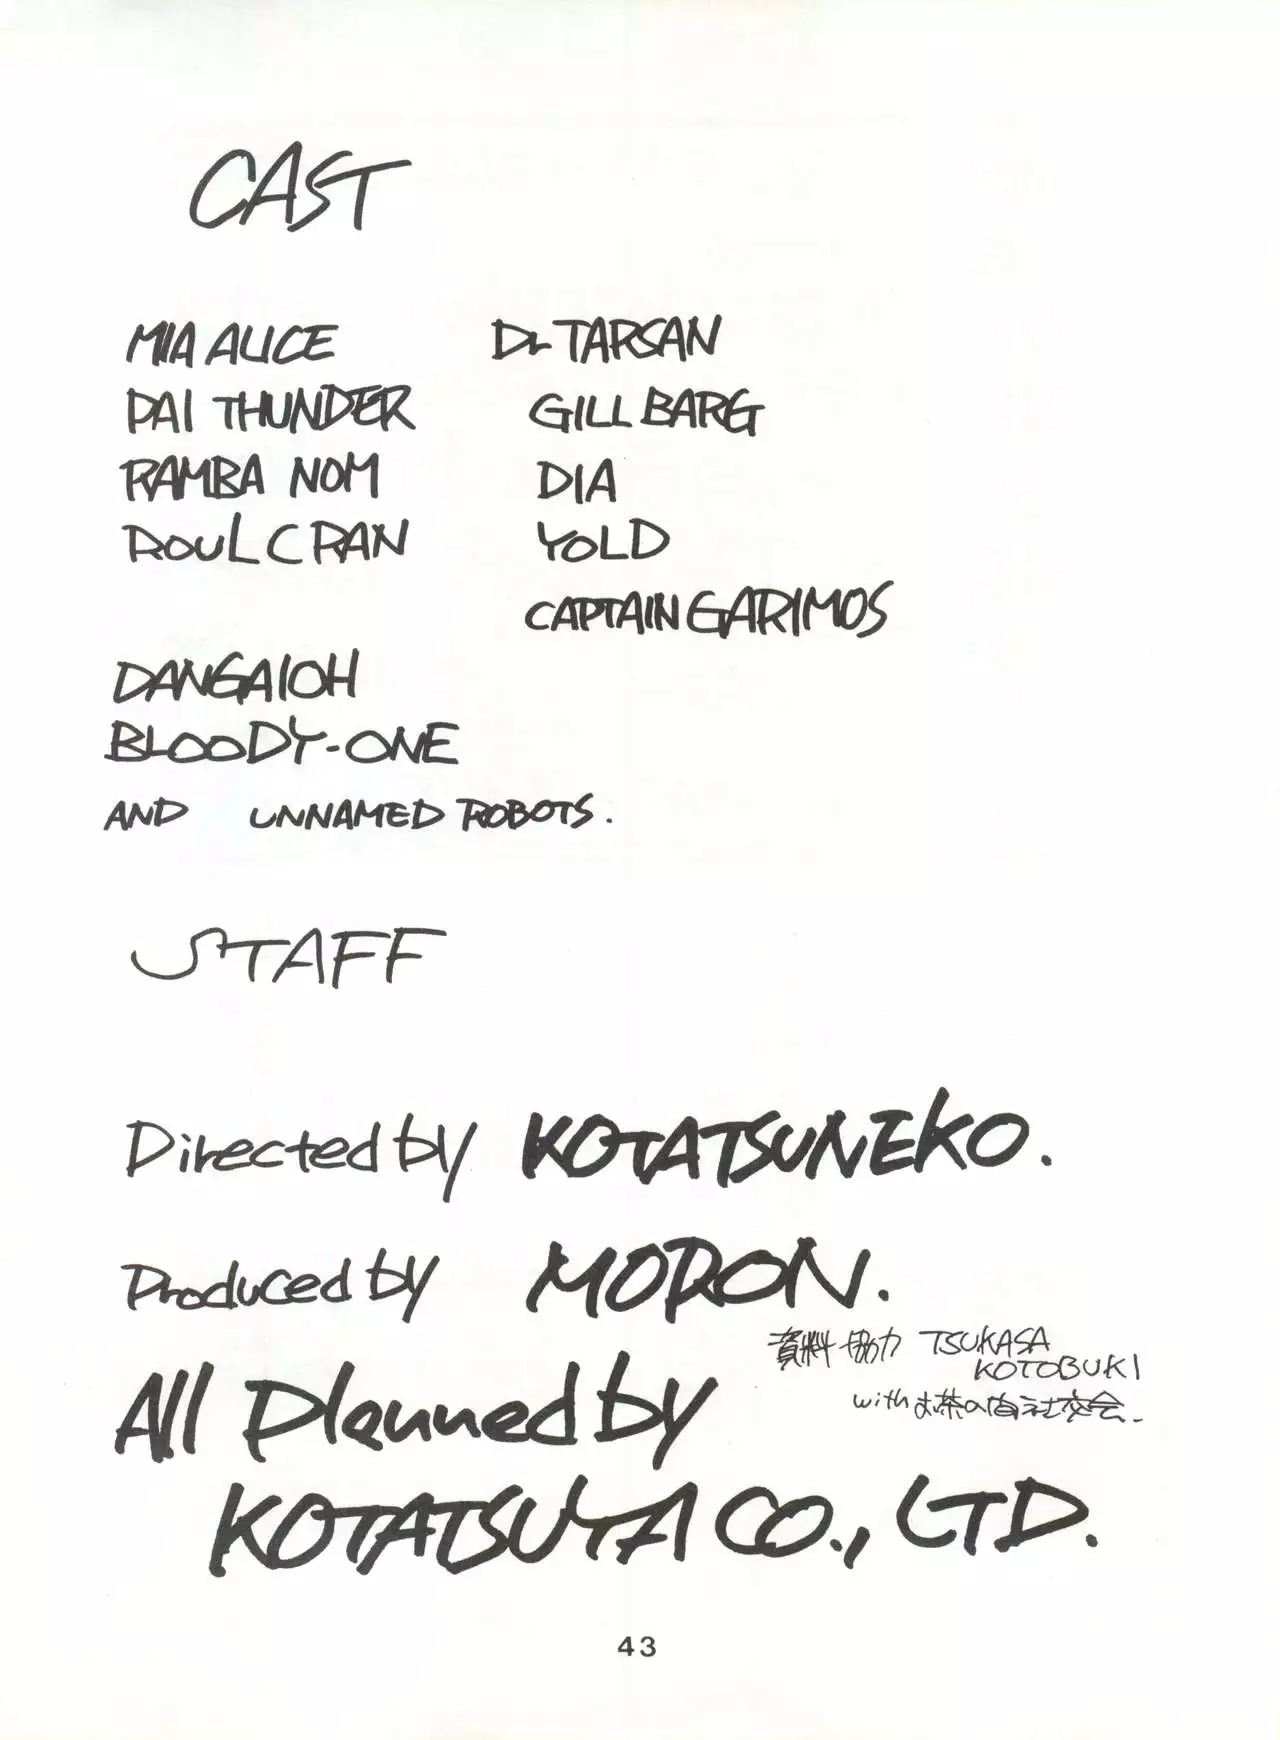 CAST
MIA ALICE
PAI THUNDER
RAMBA NOM
ROUL CRAN
Dr TARSAN
GILL BARG
DIA
YOLD
CAPTAIN GARIMOS
DANGAIOH
BLOODY-ONE
AND UNNAMED ROBOTS.
STAFF
Directed by KOTATSUNEKO.
Produced by MORON.
資料協力 TSUKASA
KOTOBUKI
with お茶の自社交会.
All Planned by
KOTATSUYA CO., LTD.
43